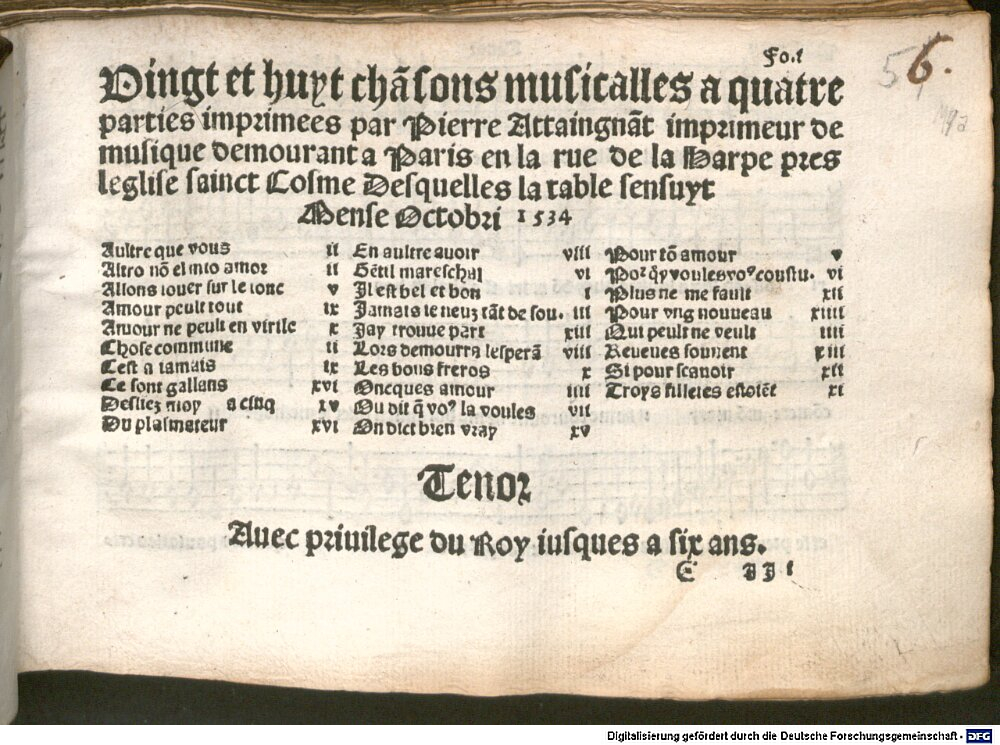 Fo.i
56.
Vingt et huyt chãsons musicalles a quatre
parties imprimees par Pierre Attaingnãt imprimeur de
musique demourant a Paris en la rue de la Harpe pres
leglise sainct Cosme Desquelles la table sensuyt
Mense Octobri 1534
Aultre que vous ii
Altro nõ el mio amor ii
Allons iouer sur le ionc v
Amour peult tout ix
Amour ne peult en virile x
Chose commune ii
Cest a iamais ix
Ce sont gallans xvi
Desliez moy a cinq xv
Du plasmateur xvi
En aultre auoir viii
Gẽtil mareschal vi
Il est bel et bon i
Jamais ie neuz tãt de sou. iii
Jay trouue part xiii
Lors demourra lesperã viii
Les bons freros x
Oncques amour iiii
Ou dit q̃ voꝰ la voules vii
On dict bien vray xv
Pour tõ amour v
Por qͥy voules voꝰ coustu. vi
Plus ne me fault xii
Pour vng nouueau xiiii
Qui peult ne veult iiii
Reueues sounent xiii
Si pour scauoir xii
Troys filletes estoiẽt xi
Tenor
Auec priuilege du Roy iusques a six ans.
E iii
Digitalisierung gefördert durch die Deutsche Forschungsgemeinschaft - DFG